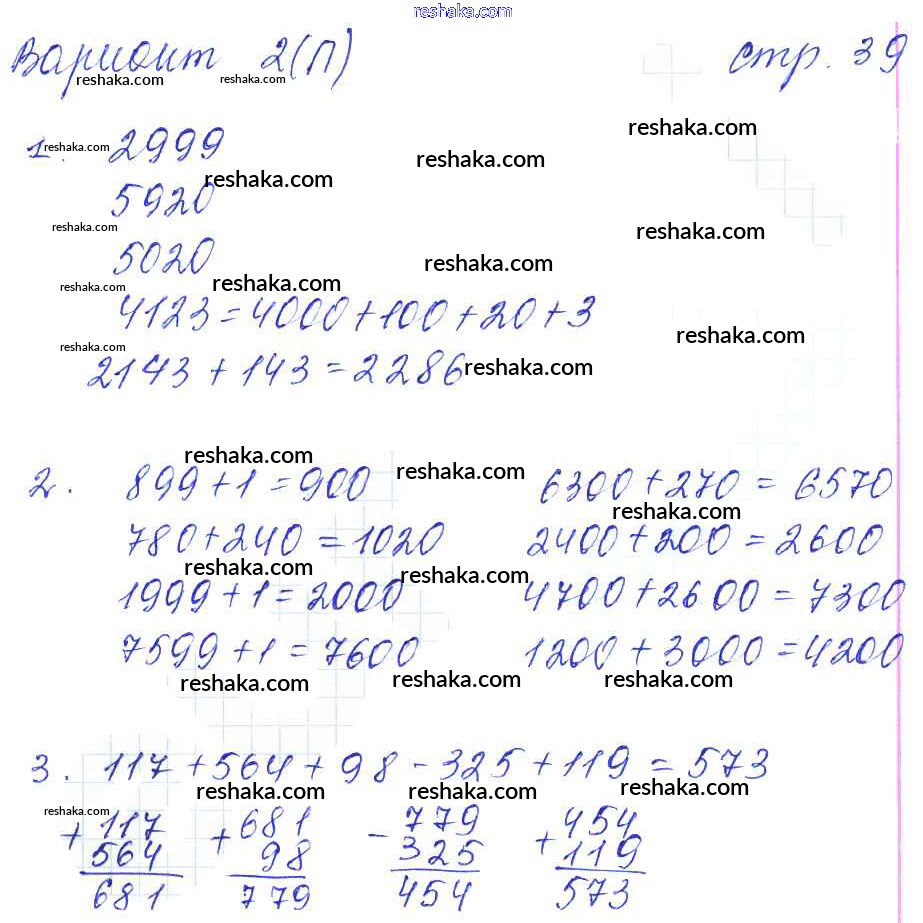 reshaka.com
Вариант 2(П) стр. 39
reshaka.com reshaka.com
reshaka.com
1. reshaka.com 2999
reshaka.com
reshaka.com
5920
reshaka.com
reshaka.com
5020
reshaka.com
reshaka.com
reshaka.com
4123=4000+100+20+3
reshaka.com
reshaka.com
2143+143=2286
reshaka.com
reshaka.com
reshaka.com
2. 899+1=900 6300+270=6570
reshaka.com
780+240=1020 2400+200=2600
reshaka.com
reshaka.com
1999+1=2000 4700+2600=7300
7599+1=7600 1200+3000=4200
reshaka.com reshaka.com reshaka.com
3. 117+564+98-325+119=573
reshaka.com reshaka.com reshaka.com
reshaka.com
+117 +681 -779 +454
564 98 325 119
681 779 454 573